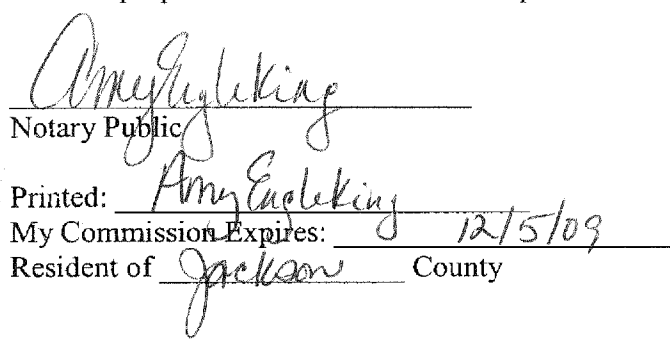 Amy Engleking
Notary Public
Printed: Amy Engleking
My Commission Expires: 12/5/09
Resident of Jackson County